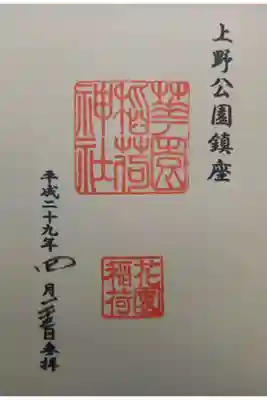 上野公園鎮座
華園
稲荷
神社
花園
稲荷
平成二十九年四月二十五日参拝